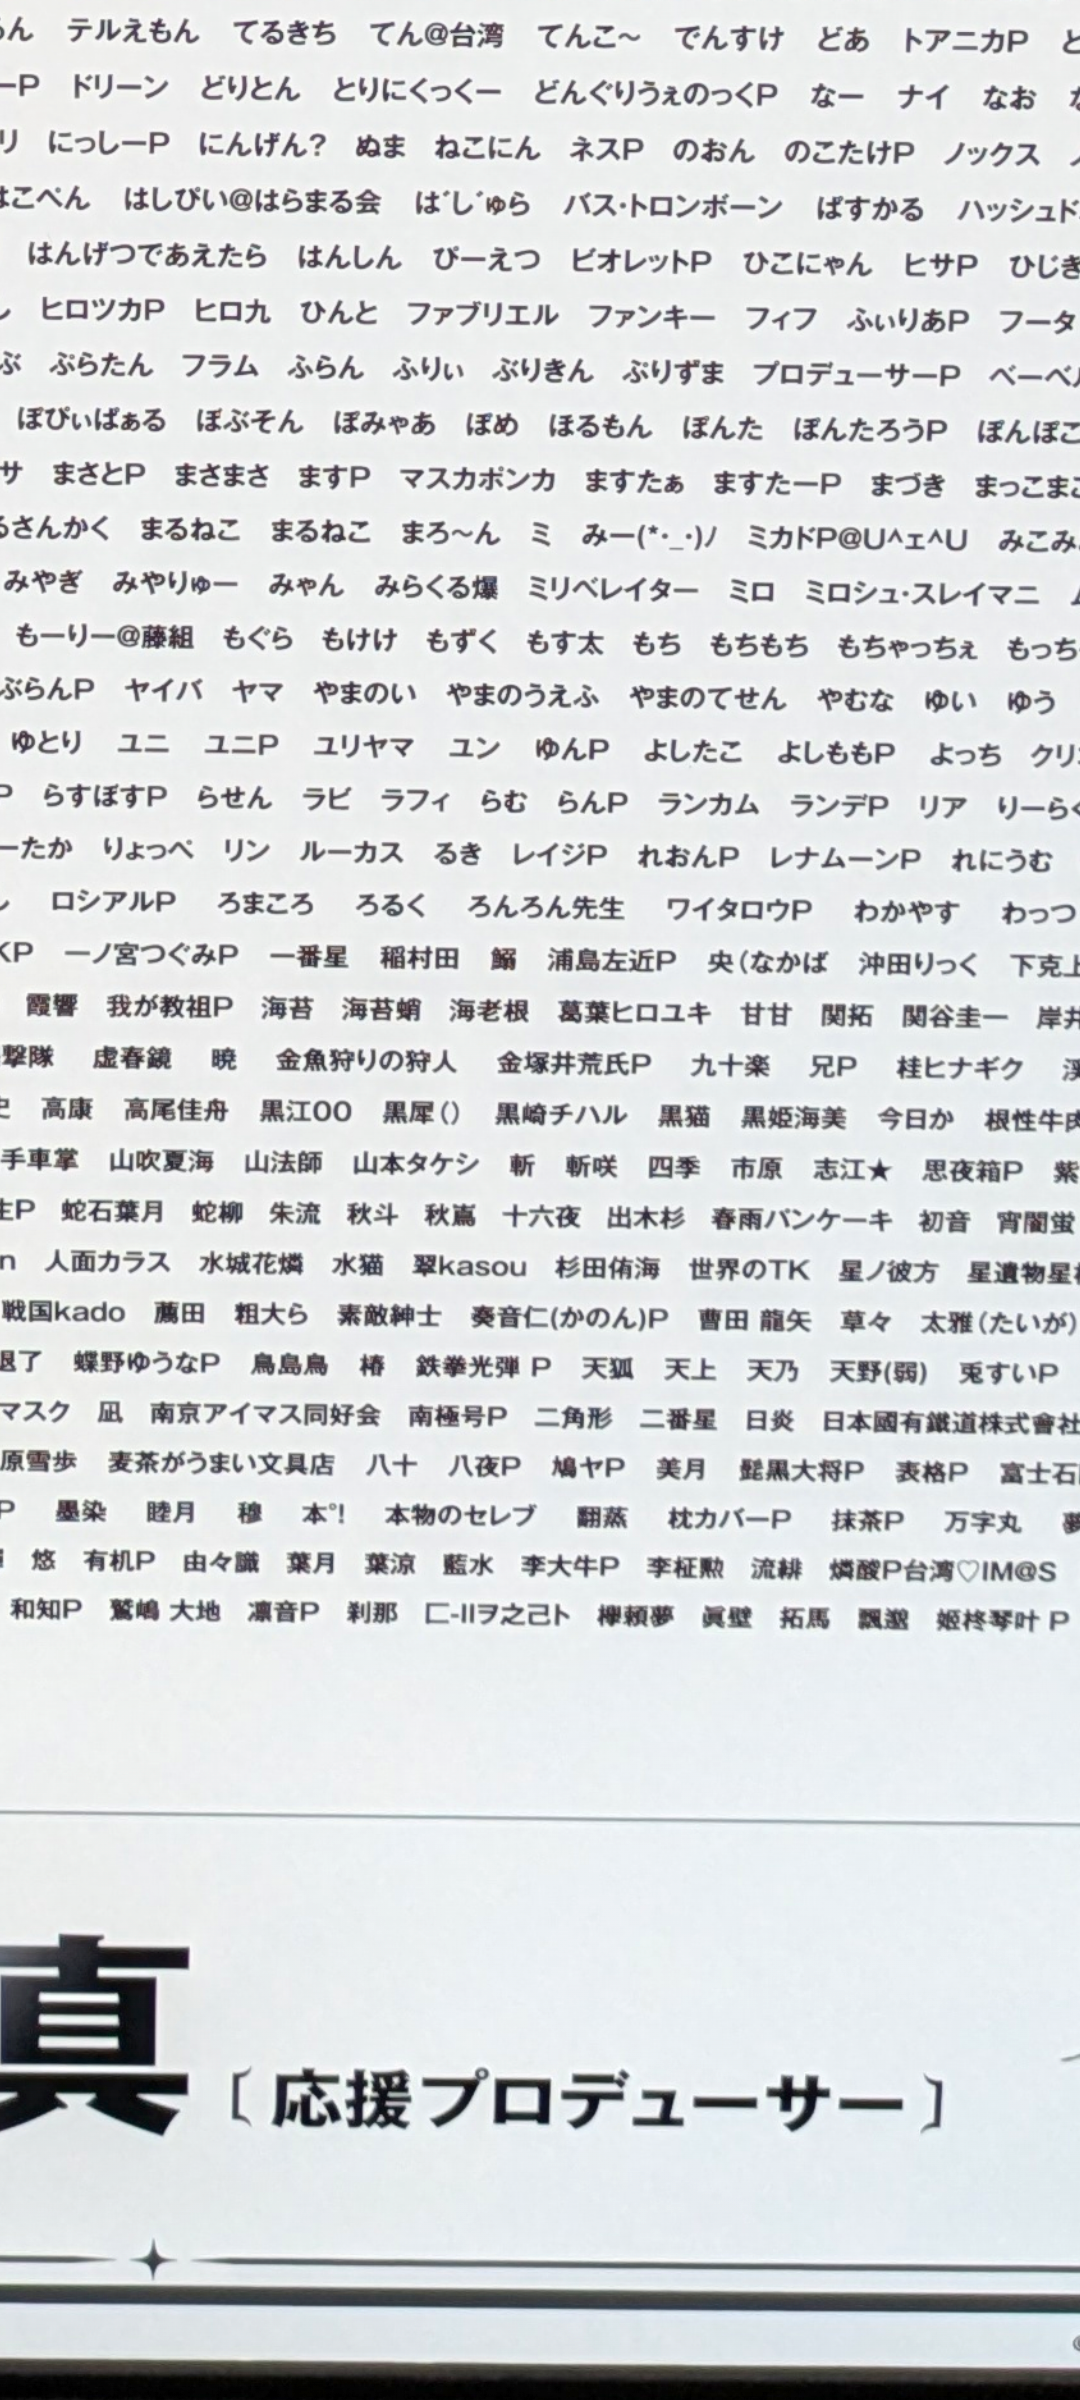 ん テルえもん てるきち てん@台湾 てんこ〜 でんすけ どあ トアニカP
ーP ドリーン どりとん とりにくっくー どんぐりうぇのっくP なー ナイ なお
リ にっしーP にんげん? ぬま ねこにん ネスP のおん のこたけP ノックス
はこぺん はしびい@はらまる会 は゛し゛ゅら バス・トロンボーン ぱすかる ハッシュド
はんげつであえたら はんしん ぴーえつ ビオレットP ひこにゃん ヒサP ひじき
し ヒロツカP ヒロ九 ひんと ファブリエル ファンキー フィフ ふぃりあP フータ
ぶ ぷらたん フラム ふらん ふりぃ ぶりきん ぷりずま プロデューサーP ベーベル
ぽぴぃばぁる ぼぶそん ぽみゃあ ぽめ ほるもん ぽんた ぽんたろうP ぽんぽこ
サ まさとP まさまさ ますP マスカポンカ ますたぁ ますたーP まづき まっこまこ
るさんかく まるねこ まるねこ まろ〜ん ミ みー(*・_・)ノ ミカドP@U^ェ^U みこみ
みやぎ みやりゅー みゃん みらくる爆 ミリベレイター ミロ ミロシュ・スレイマニ
もーりー@藤組 もぐら もけけ もずく もす太 もち もちもち もちゃっちぇ もっち
ぶらんP ヤイバ ヤマ やまのい やまのうえふ やまのてせん やむな ゆい ゆう
ゆとり ユニ ユニP ユリヤマ ユン ゆんP よしたこ よしももP よっち クリ
P らすぼすP らせん ラビ ラフィ らむ らんP ランカム ランデP リア りーらく
ーたか りょっぺ リン ルーカス るき レイジP れおんP レナムーンP れにうむ
ロシアルP ろまころ ろるく ろんろん先生 ワイタロウP わかやす わっつ
KP 一ノ宮つぐみP 一番星 稲村田 鰯 浦島左近P 央(なかば 沖田りっく 下克上
霞響 我が教祖P 海苔 海苔蛸 海老根 葛葉ヒロユキ 甘甘 関拓 関谷圭一 岸井
撃隊 虚春鏡 暁 金魚狩りの狩人 金塚井荒氏P 九十楽 兄P 桂ヒナギク
史 高康 高尾佳舟 黒江00 黒犀() 黒崎チハル 黒猫 黒姫海美 今日か 根性牛肉
手車掌 山吹夏海 山法師 山本タケシ 斬 斬咲 四季 市原 志江★ 思夜箱P 紫
生P 蛇石葉月 蛇柳 朱流 秋斗 秋嶌 十六夜 出木杉 春雨パンケーキ 初音 宵闇蛍
n 人面カラス 水城花燐 水猫 翠kasou 杉田侑海 世界のTK 星ノ彼方 星遺物星
戦国kado 薦田 粗大ら 素敵紳士 奏音仁(かのん)P 曹田 龍矢 草々 太雅(たいが)
退了 蝶野ゆうなP 鳥島鳥 椿 鉄拳光弾 P 天狐 天上 天乃 天野(弱) 兎すいP
マスク 凪 南京アイマス同好会 南極号P 二角形 二番星 日炎 日本國有鐵道株式會社
原雪歩 麦茶がうまい文具店 八十 八夜P 鳩ヤP 美月 髭黒大将P 表格P 富士石
P 墨染 睦月 穆 本°! 本物のセレブ 翻蒸 枕カバーP 抹茶P 万字丸 夢
悠 有机P 由々識 葉月 葉涼 藍水 李大牛P 李柾勲 流緋 燐酸P台湾♡IM@S
和知P 鷲嶋 大地 凛音P 刹那 匚-IIヲ之己ト 櫻頼夢 眞壁 拓馬 飄邈 姫柊琴叶 P
真〔応援プロデューサー〕